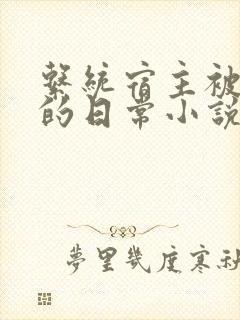 繫統宿主被
的日常小說
夢里幾度寒秋